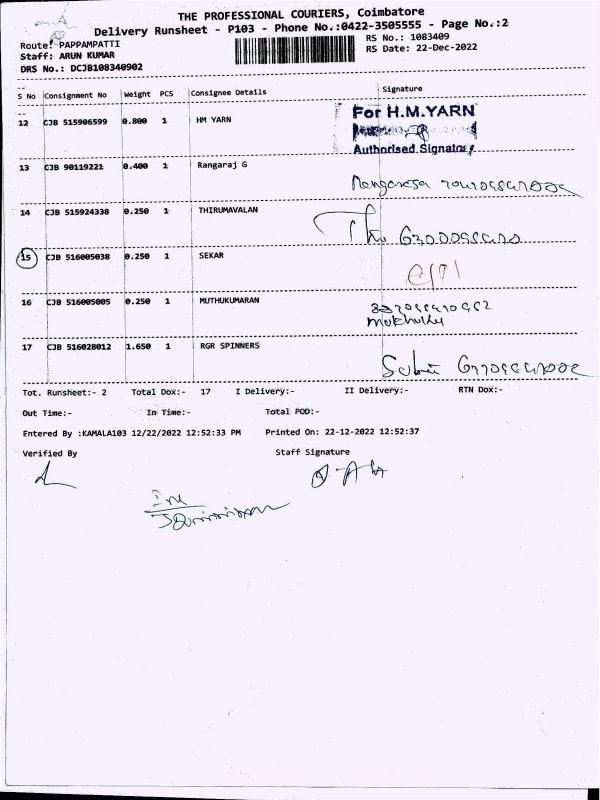 THE PROFESSIONAL COURIERS, Coimbatore
Delivery Runsheet - P103 - Phone No.:0422-3505555 - Page No.:2
Route: PAPPAMPATTI
RS No.: 1083409
Staff: ARUN KUMAR
RS Date: 22-Dec-2022
DRS No.: DCJB108340902
S No Consignment No Weight PCS Consignee Details Signature
12 CJB 515906599 0.800 1 HM YARN
For H.M.YARN
Authorised Signatory
13 CJB 90119221 0.400 1 Rangaraj G
14 CJB 515924338 0.250 1 THIRUMAVALAN
15 CJB 516005038 0.250 1 SEKAR
16 CJB 516005005 0.250 1 MUTHUKUMARAN
17 CJB 516028012 1.650 1 RGR SPINNERS
Tot. Runsheet:- 2 Total Dox:- 17 I Delivery:- II Delivery:- RTN Dox:-
Out Time:- In Time:- Total POD:-
Entered By :KAMALA103 12/22/2022 12:52:33 PM Printed On: 22-12-2022 12:52:37
Verified By Staff Signature